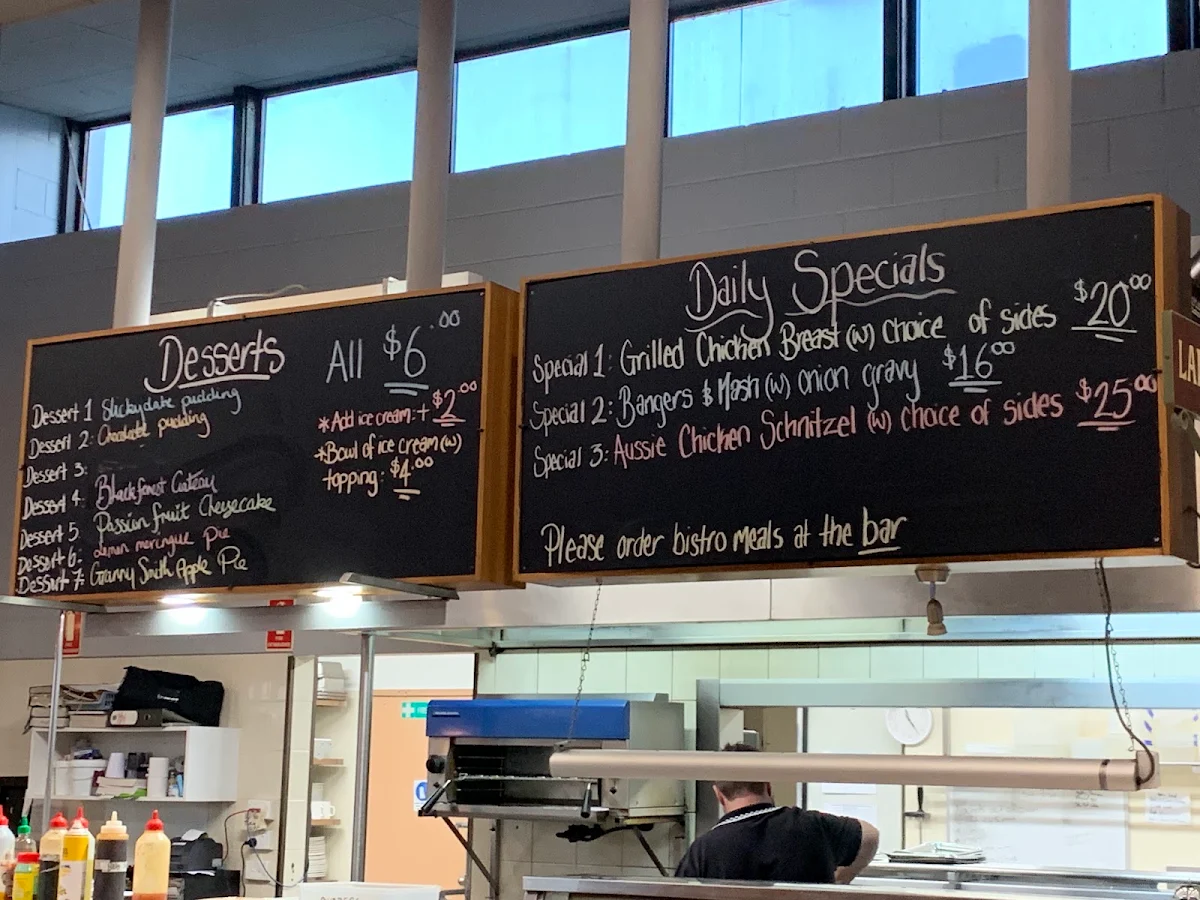 Desserts
All $6.00
Dessert 1 Stickydate pudding
Dessert 2: Chocolate pudding
Dessert 3:
Dessert 4: Black forest Gateau
Dessert 5 Passion fruit Cheesecake
Dessert 6: Lemon meringue Pie
Dessert 7: Granny Smith Apple Pie
*Add ice cream: + $2.00
*Bowl of ice cream (w)
topping: $4.00
Daily Specials
Special 1: Grilled Chicken Breast (w) choice of sides $20.00
Special 2: Bangers & Mash (w) onion gravy $16.00
Special 3: Aussie Chicken Schnitzel (w) choice of sides $25.00
Please order bistro meals at the bar
LA